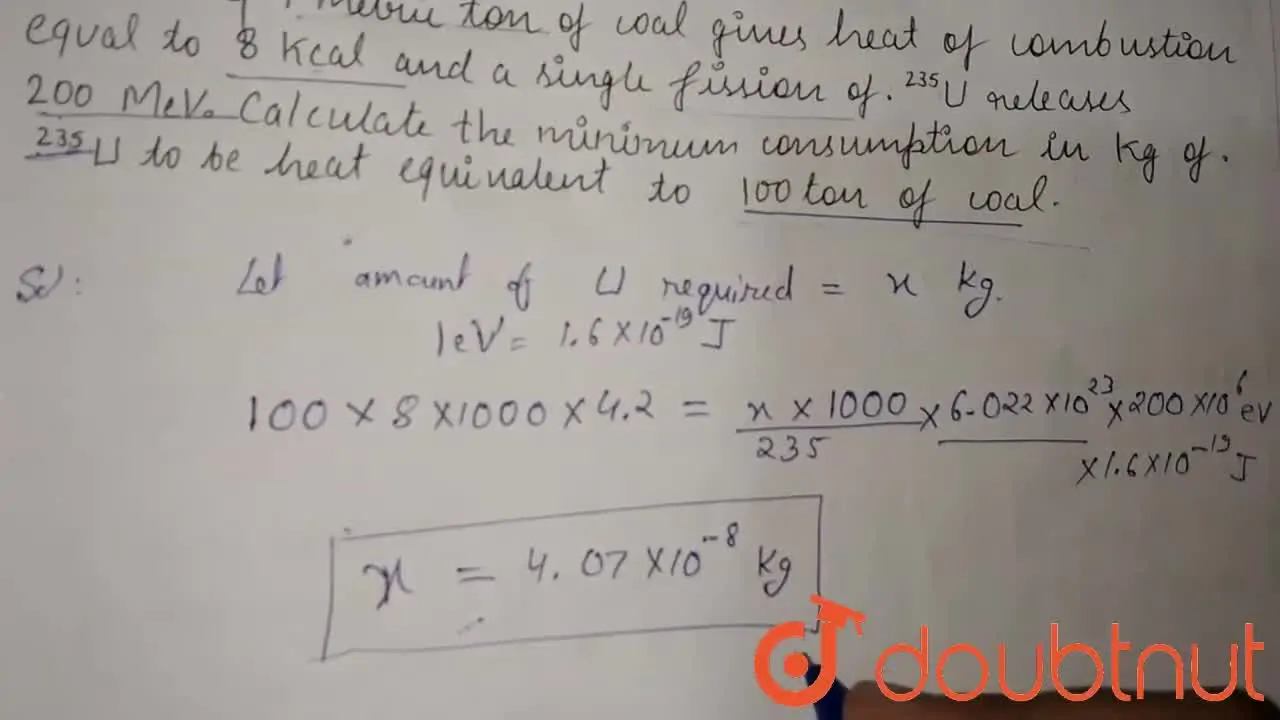 metric ton of coal gives heat of combustion
equal to 8 Kcal and a single fission of. ²³⁵U releases
200 MeV. Calculate the minimum consumption in Kg of.
²³⁵U to be heat equivalent to 100 ton of coal.
Sol: Let amount of U required = x Kg.
1eV = 1.6 × 10⁻¹⁹ J
100 × 8 × 1000 × 4.2 = x × 1000 / 235 × 6.022 × 10²³ × 200 × 10⁶ eV
× 1.6 × 10⁻¹⁹ J
x = 4.07 × 10⁻⁸ Kg
doubtnut